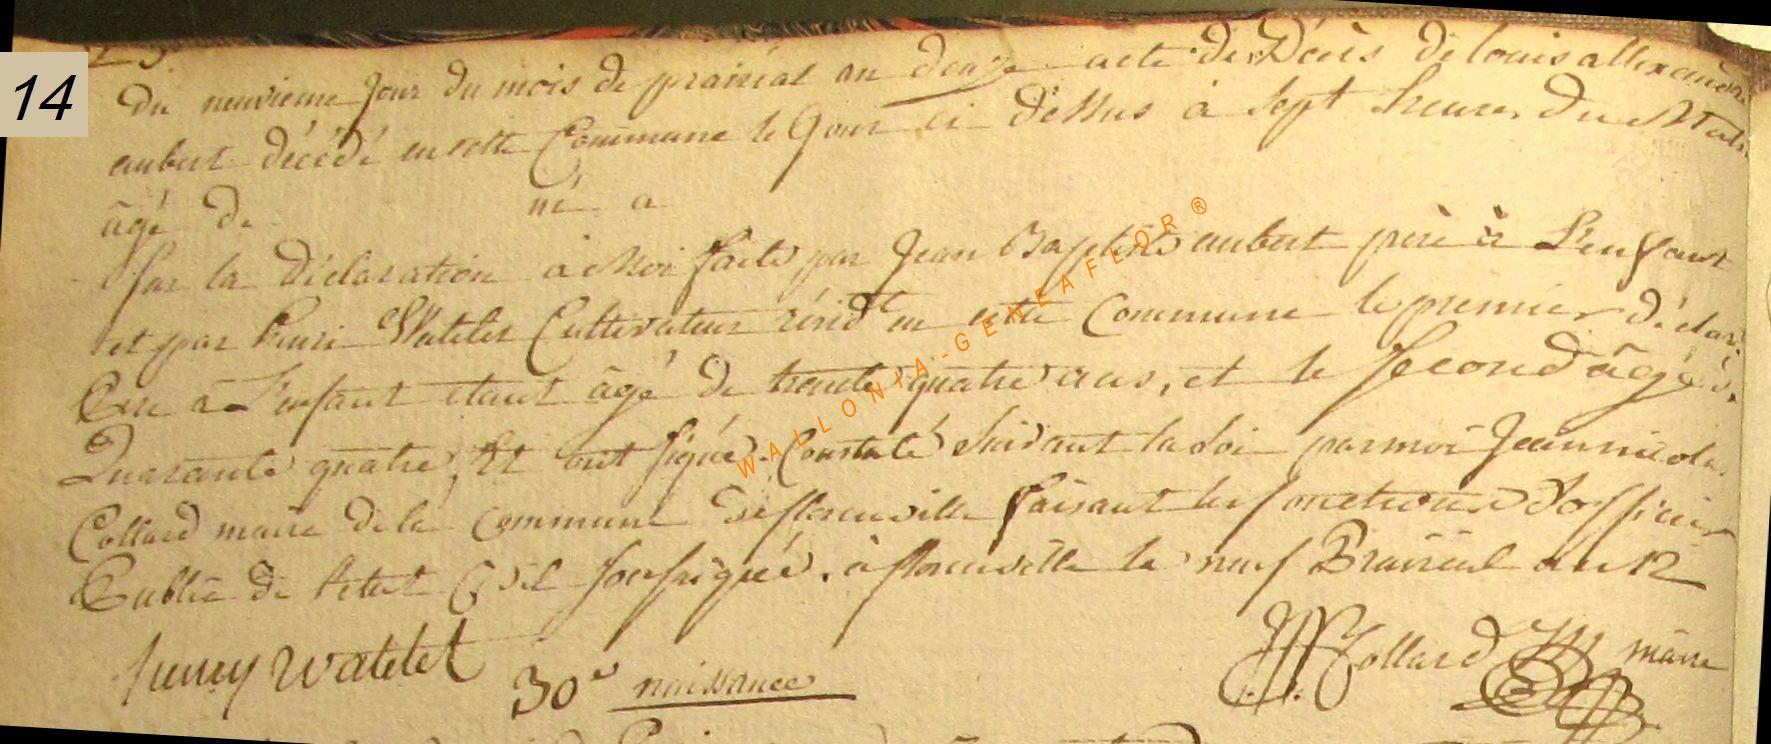 14
du neuvieme jour du mois de prairial an douze acte de Décès de louis allexandre
aubert décédé en cette Commune le jour ci dessus à sept heures du Matin
âgé de né a
sur la déclaration à Moi faite par Jean Baptiste aubert père à L'enfant
et par henri Watelet Cultivateur résidt en cette Commune le premier déclaré
Ere a L'enfant etant âgé de trente quatre ans, et le second âgé de
Quarante quatre, Et ont signé. Constaté suivant la loi par moi Jean nicolas
Collard maire de la commune de florenville faisant les fonctions d'officier
Public de l'état Civil soussigné. à florenville le neuf Prairial an 12
henry watelet
JN Collard maire
30e naissance
WALLONIA-GENEAFLOR®